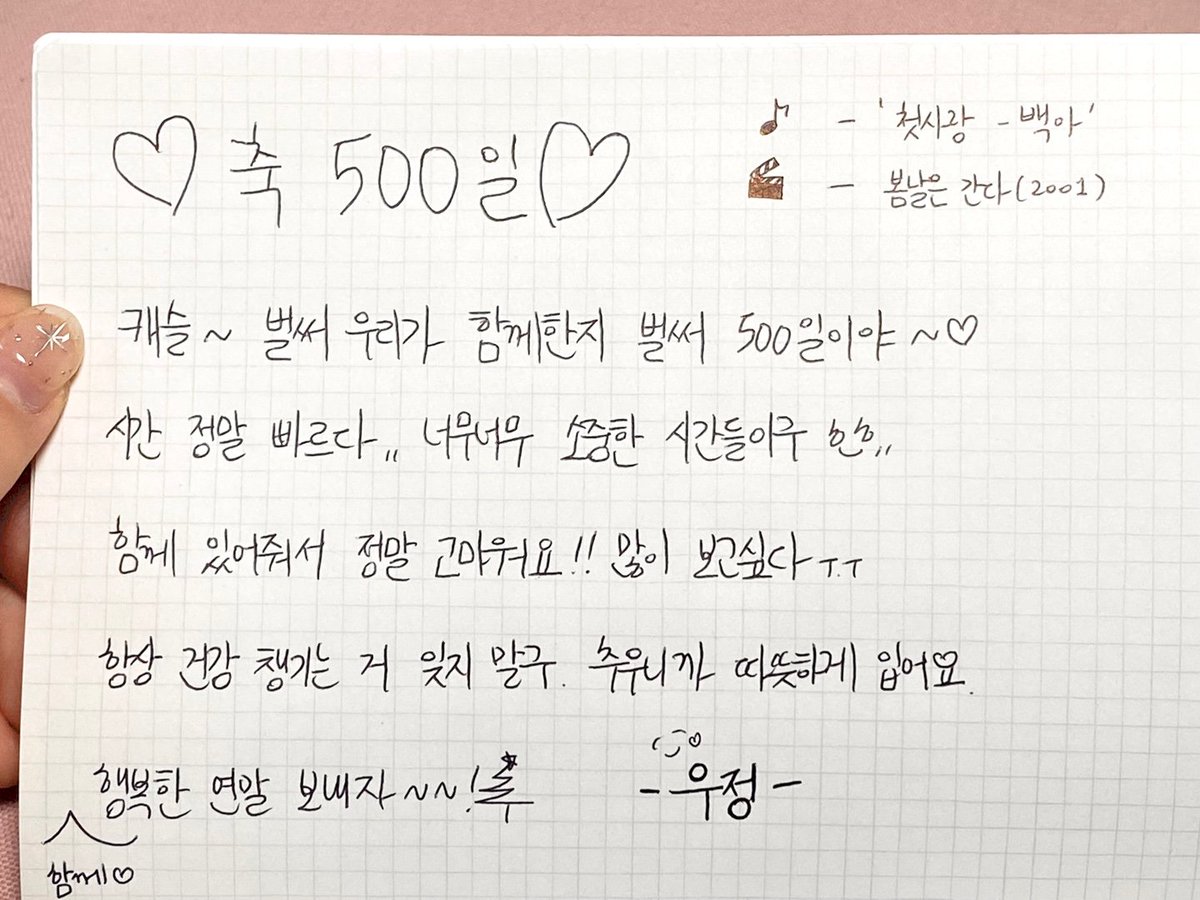 ♡축 500일♡
♪ - '첫사랑 - 백아'
🎬 - 봄날은 간다(2001)
캐슬~ 벌써 우리가 함께한지 벌써 500일이야~♡
시간 정말 빠르다,, 너무너무 소중한 시간들이구 흐흐,,
함께 있어줘서 정말 고마워요!! 많이 보고싶다ㅜ.ㅜ
항상 건강 챙기는 거 잊지 말구. 추우니까 따뜻하게 입어요.
행복한 연말 보내자~~!
-우정-
함께♡